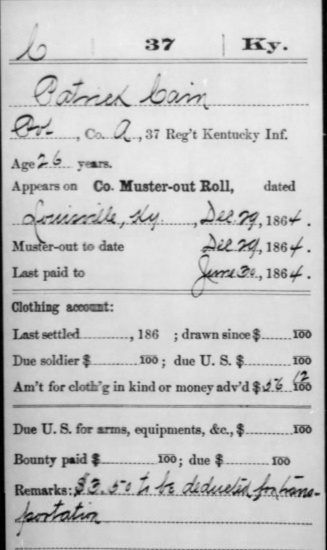 C 37 Ky.
Patrick Cain
Pvt., Co. A, 37 Reg't Kentucky Inf.
Age 26 years.
Appears on Co. Muster-out Roll, dated
Louisville, Ky., Dec. 29, 1864.
Muster-out to date Dec. 29, 1864.
Last paid to June 30, 1864.
Clothing account:
Last settled, 186 ; drawn since $ 100
Due soldier $ 100; due U. S. $ 100
Am't for cloth'g in kind or money adv'd $56 12/100
Due U. S. for arms, equipments, &c., $ 100
Bounty paid $ 100; due $ 100
Remarks: $3.50 to be deducted for trans-
portation